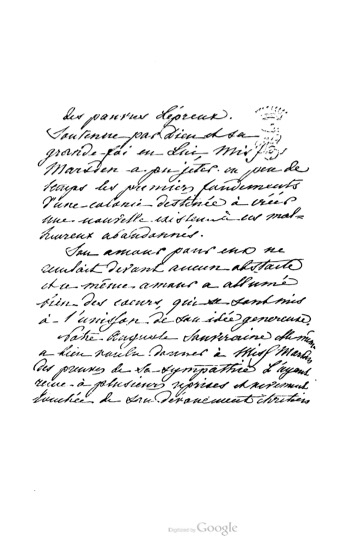 des pauvres lépreux.
Soutenue par Dieu et sa
grande foi en Lui Miss
Marsden a pu jeter en peu de
temps les premiers fondements
d'une colonie destinée à créer
une nouvelle existence à ces mal-
heureux abandonnés.
Son amour pour eux ne
reculait devant aucun obstacle
et ce même amour a allumé
bien des coeurs, qui se sont mis
à l'unisson de son idée genereuse
Notre Auguste Souveraine Elle même
a bien voulu donner à Miss Marsden
des preuves de Sa sympathie L'ayant
reçue à plusieurs reprises et vivement
touchée de son dévouement chrétien
Digitized by Google